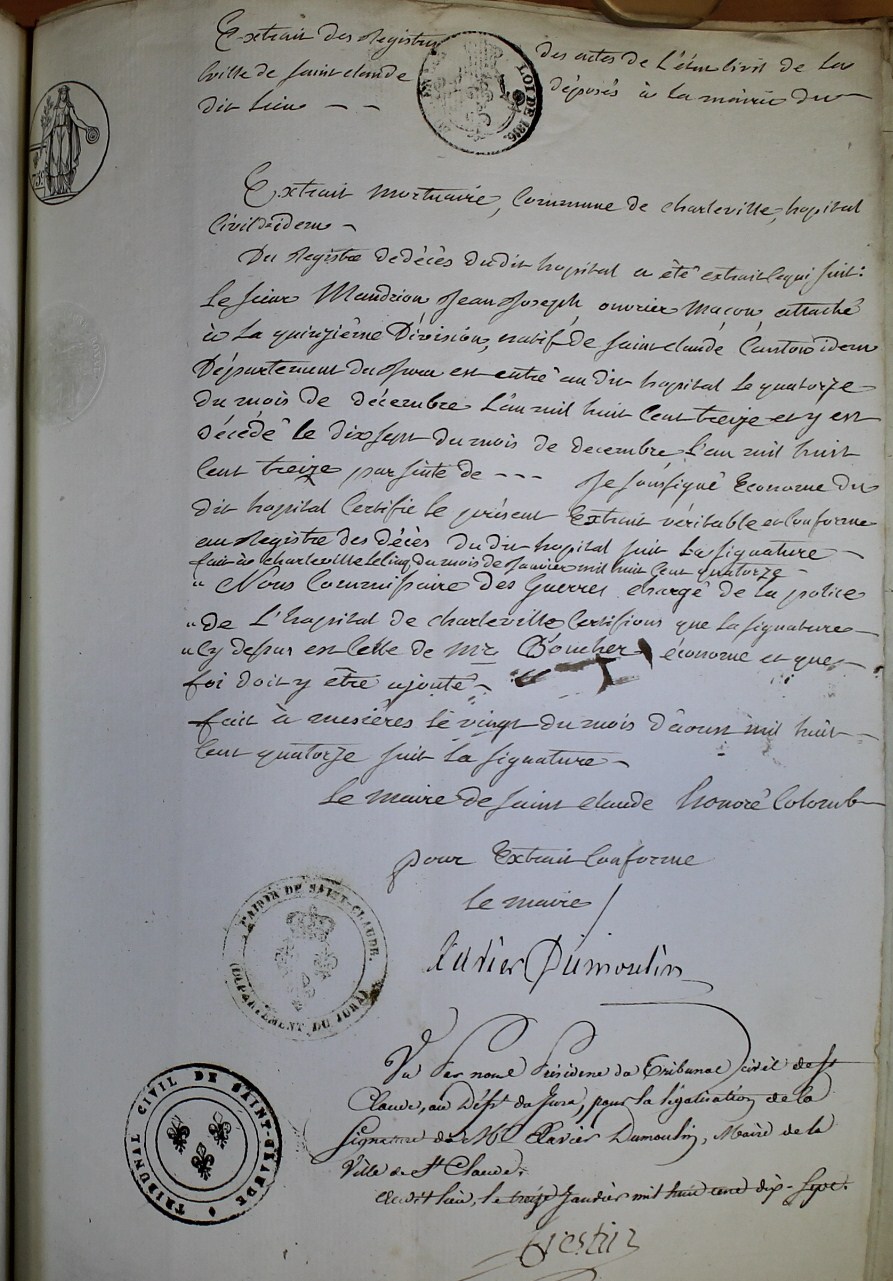 Extrait des Registres des actes de L'état civil de la
ville de Saint Claude déposés à la mairie du
dit Lieu - -
LOI DE 1816.
Extrait Mortuaire, Commune de charleville, hopital
Civil idem -
Du Registre de décès dudit hopital a été extrait ce qui suit:
Le sieur Mandrion Jean Joseph, ouvrier Maçon, attaché
à La quinzième Division, natif de Saint Claude Canton idem
Département du Jura est entré au dit hopital Le quatorze
du mois de décembre L'an mil huit Cent treize et y est
décédé le dix sept du mois de decembre L'an mil huit
Cent treize par suite de - - - Je soussigné Econome du
dit hopital Certifie le présent Extrait véritable et Conforme
au Registre des décès du dit hopital suit La signature -
fait à charleville le cinq du mois de Janvier mil huit Cent quatorze -
" Nous Commissaire des Guerres chargé de la police
" de L'hopital de charleville Certifions que La signature
" Cy dessus est Celle de Mr. Boucher économe et que
foi doit y être ajouté -
fait à mesières le vingt du mois d'aoust mil huit
Cent quatorze suit La signature -
Le Maire de Saint Claude honoré Colomb
pour Extrait Conforme
Le maire
Xavier Dumoulin
MAIRIE DE SAINT-CLAUDE.
(DÉPARTEMENT DU JURA)
Vu Par nous Président du Tribunal civil de St
Claude, au Dépt. du Jura, pour la légalisation de la
Signature de Mr. Xavier Dumoulin, Maire de la
Ville de St Claude.
Audit lieu, le treize Janvier mil huit cent dix-sept.
TRIBUNAL CIVIL DE SAINT-CLAUDE